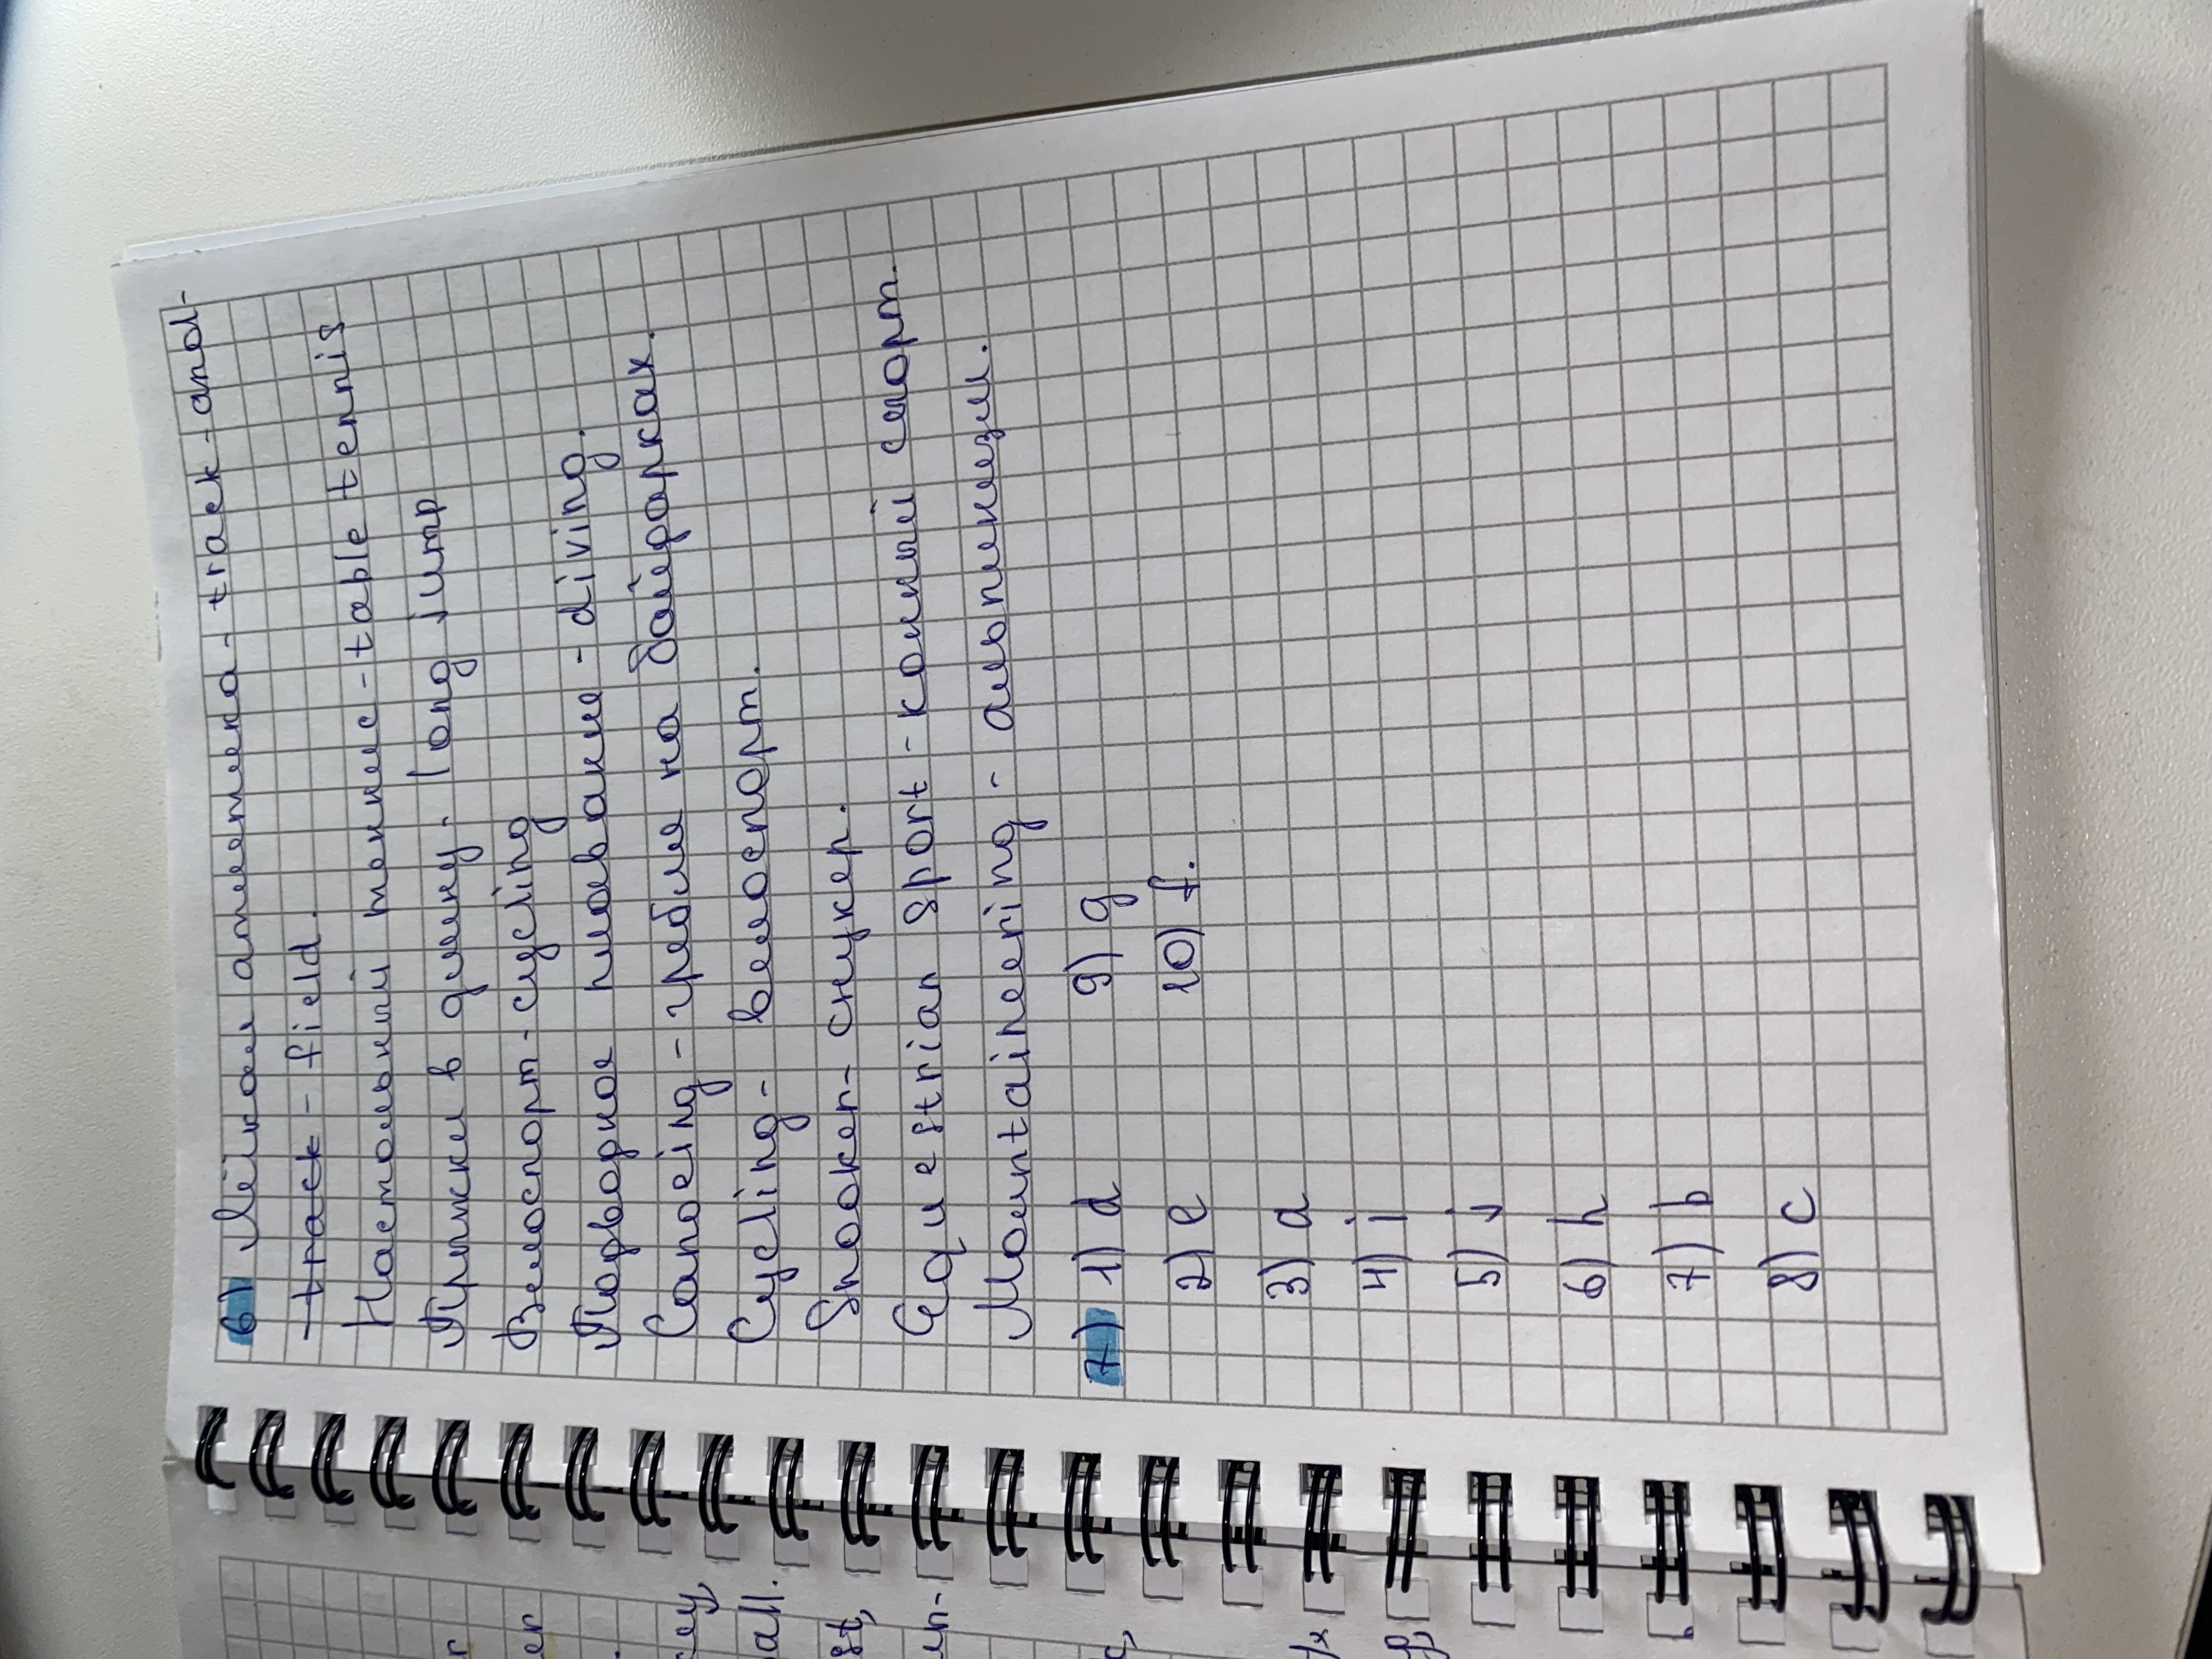 6) Лёгкая атлетика - track - and -
- field.
Настольный теннис - table tennis
Прыжки в длину - long jump
Велоспорт - cycling
Подводное плавание - diving.
Canoeing - гребля на байдарках.
Cycling - велоспорт.
Snooker - снукер.
Equestrian sport - конный спорт.
Mountaineering - альпинизм.
7) 1) d 9) g
2) e 10) f.
3) a
4) i
5) j
6) h
7) b
8) c